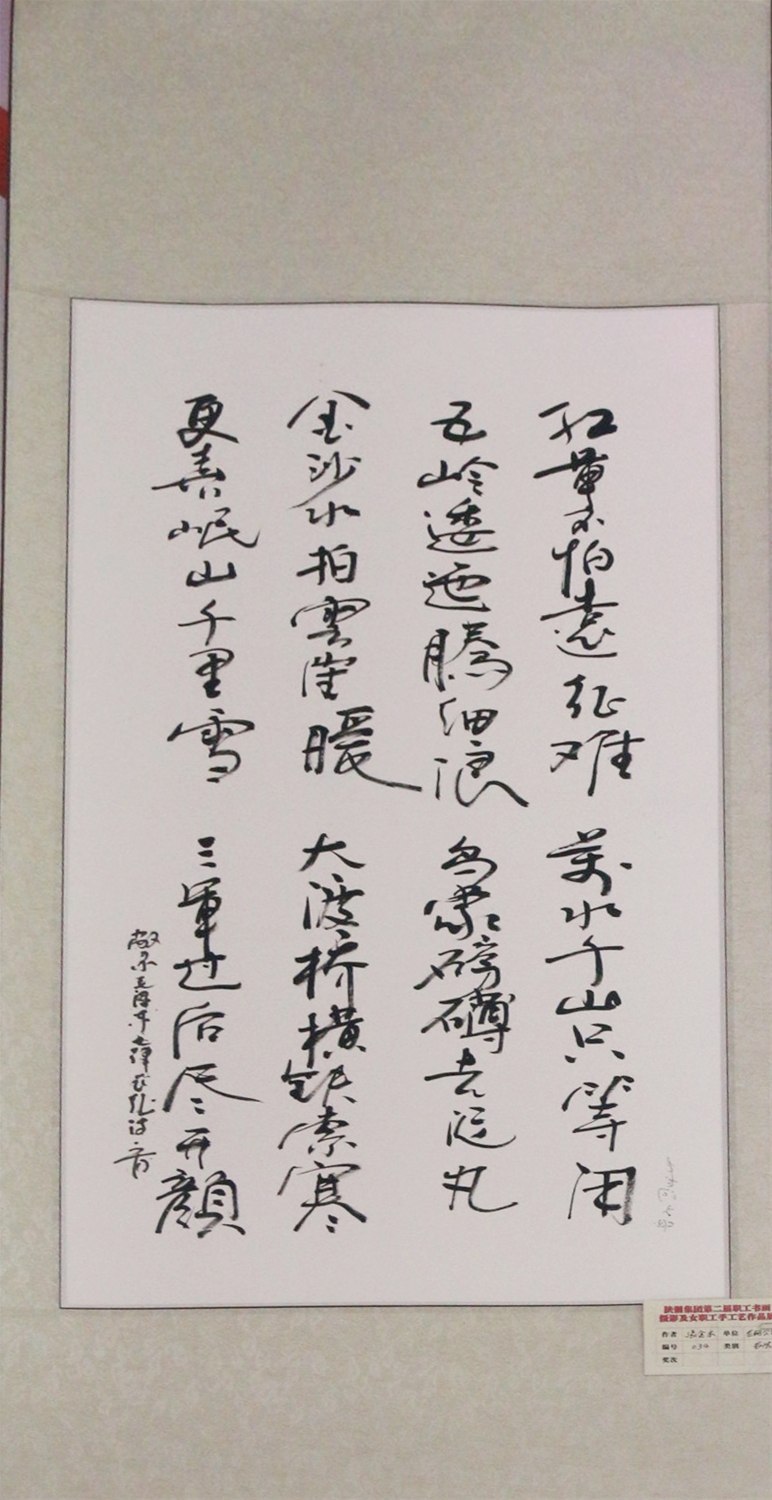 红軍不怕遠征难 萬水千山只等闲
五岭逶迤騰细浪 乌蒙磅礴走泥丸
金沙水拍雲崖暖 大渡桥横铁索寒
更喜岷山千里雪 三軍过后尽开顏
敬录毛泽东七律长征诗一首
陕钢集团第二届职工书画
摄影及女职工手工艺作品展
作者 单位
编号 034 类别
奖次